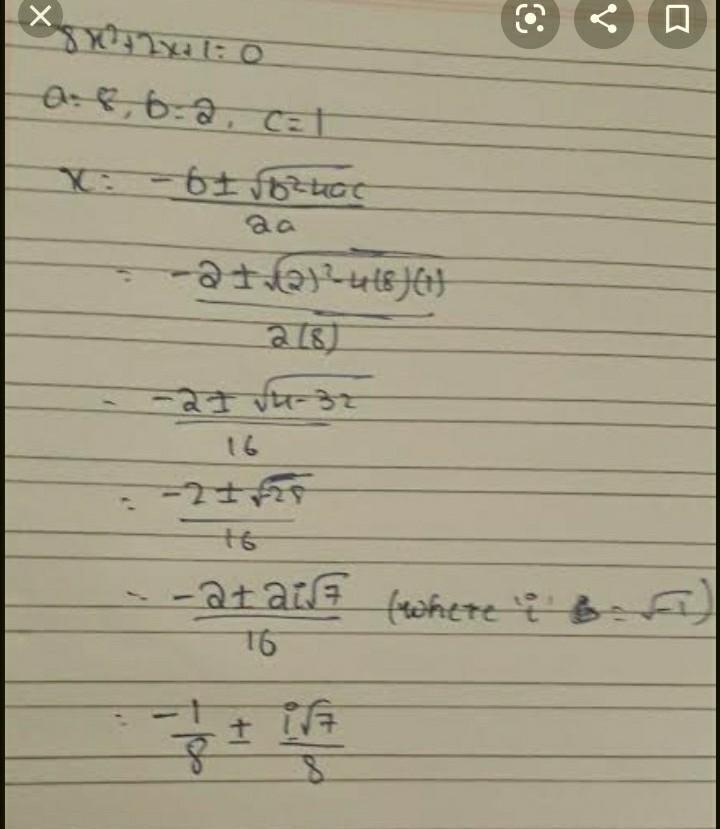 8x²+2x+1=0
a=8, b=2, c=1
x= -b±√b²-4ac
2a
= -2±√(2)²-4(8)(1)
2(8)
= -2±√4-32
16
= -2±√-28
16
= -2±2i√7 (where 'i' = √-1)
16
= -1/8 ± i√7/8